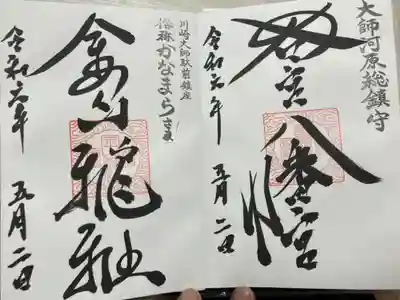 大師河原総鎮守
若宮八幡宮
令和元年 五月二日
川崎大師駅前鎮座
俗称かなまらさま
金山神社
令和元年 五月二日